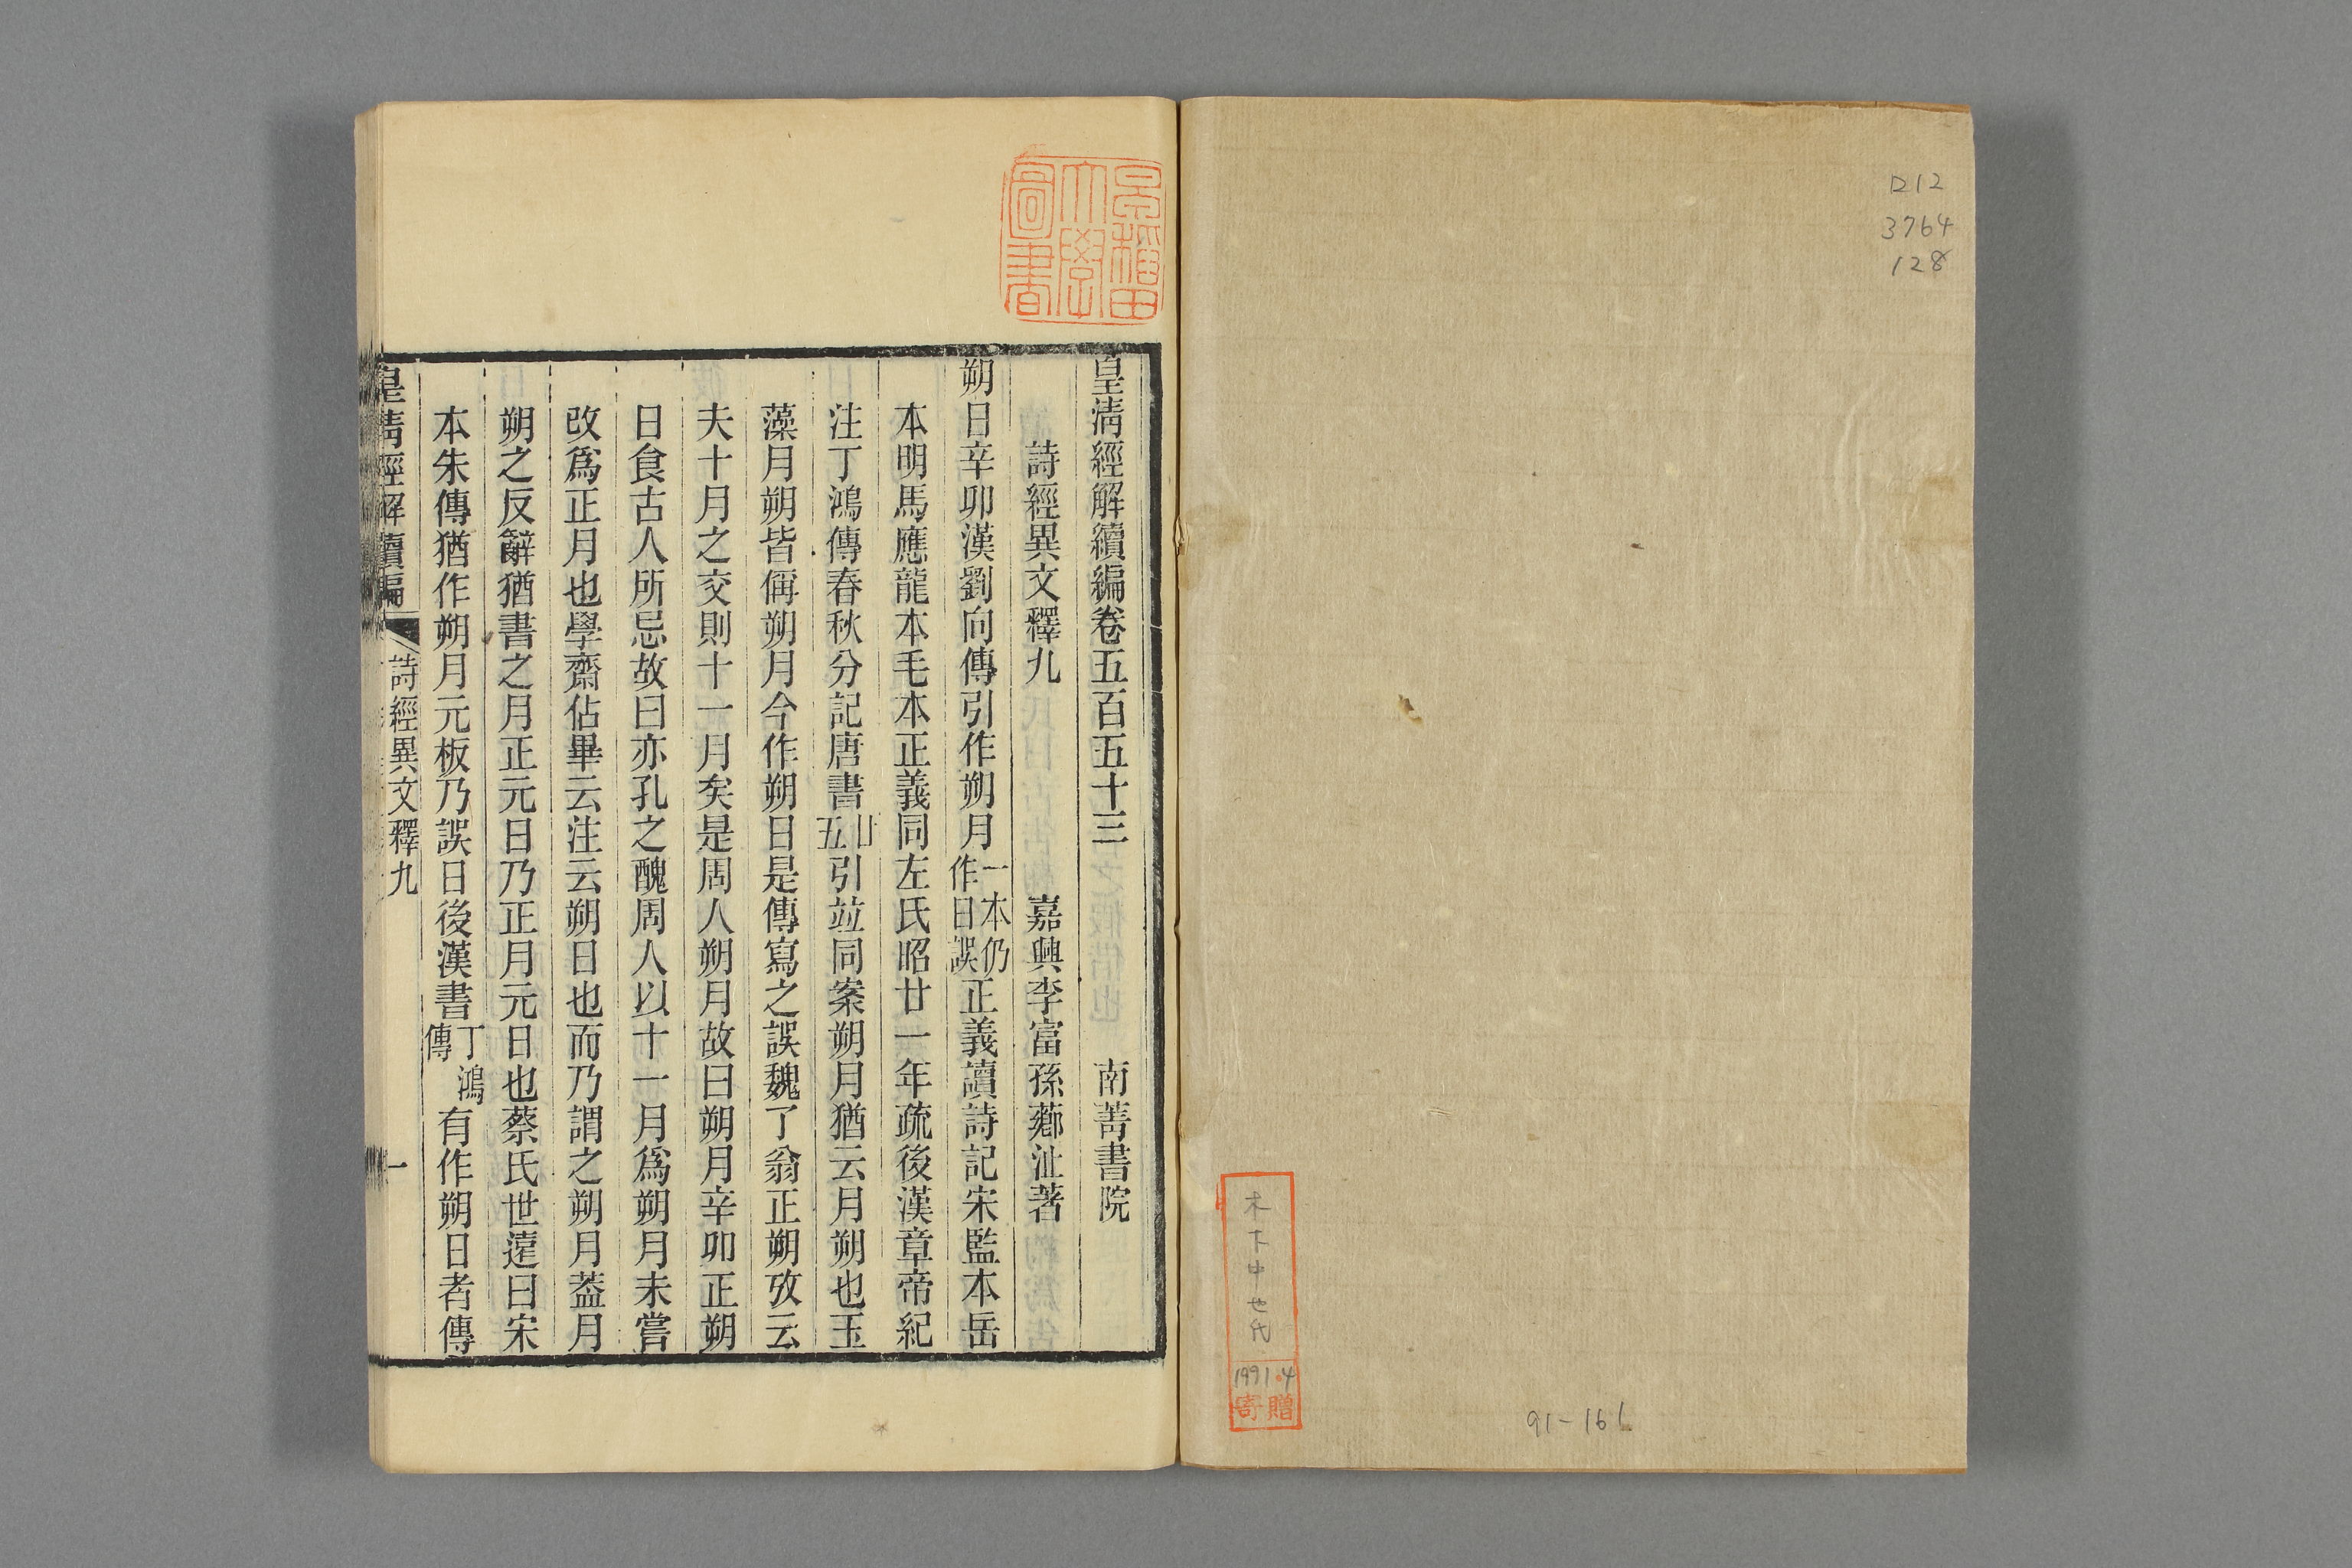 ロ12
3764
128
木木中也氏
1991.4
寄贈
91-161
早稲田
大學
圖書
皇清經解續編卷五百五十三　南菁書院
詩經異文釋九　嘉興李富孫薌沚著
朔日辛卯漢劉向傳引作朔月一本仍作日誤正義讀詩記宋監本岳
本明馬應龍本毛本正義同左氏昭廿一年疏後漢章帝紀
注丁鴻傳春秋分記唐書廿五引並同案朔月猶云月朔也玉
藻月朔皆偁朔月今作朔日是傳寫之誤魏了翁正朔攷云
夫十月之交則十一月矣是周人朔月故曰朔月辛卯正朔
日食古人所忌故曰亦孔之醜周人以十一月爲朔月未嘗
改爲正月也學齋佔畢云注云朔日也而乃謂之朔月葢月
朔之反辭猶書之月正元日乃正月元日也蔡氏世遠曰宋
本朱傳猶作朔月元板乃誤日後漢書丁鴻傳有作朔日者傳
皇清經解續編　詩經異文釋九　一